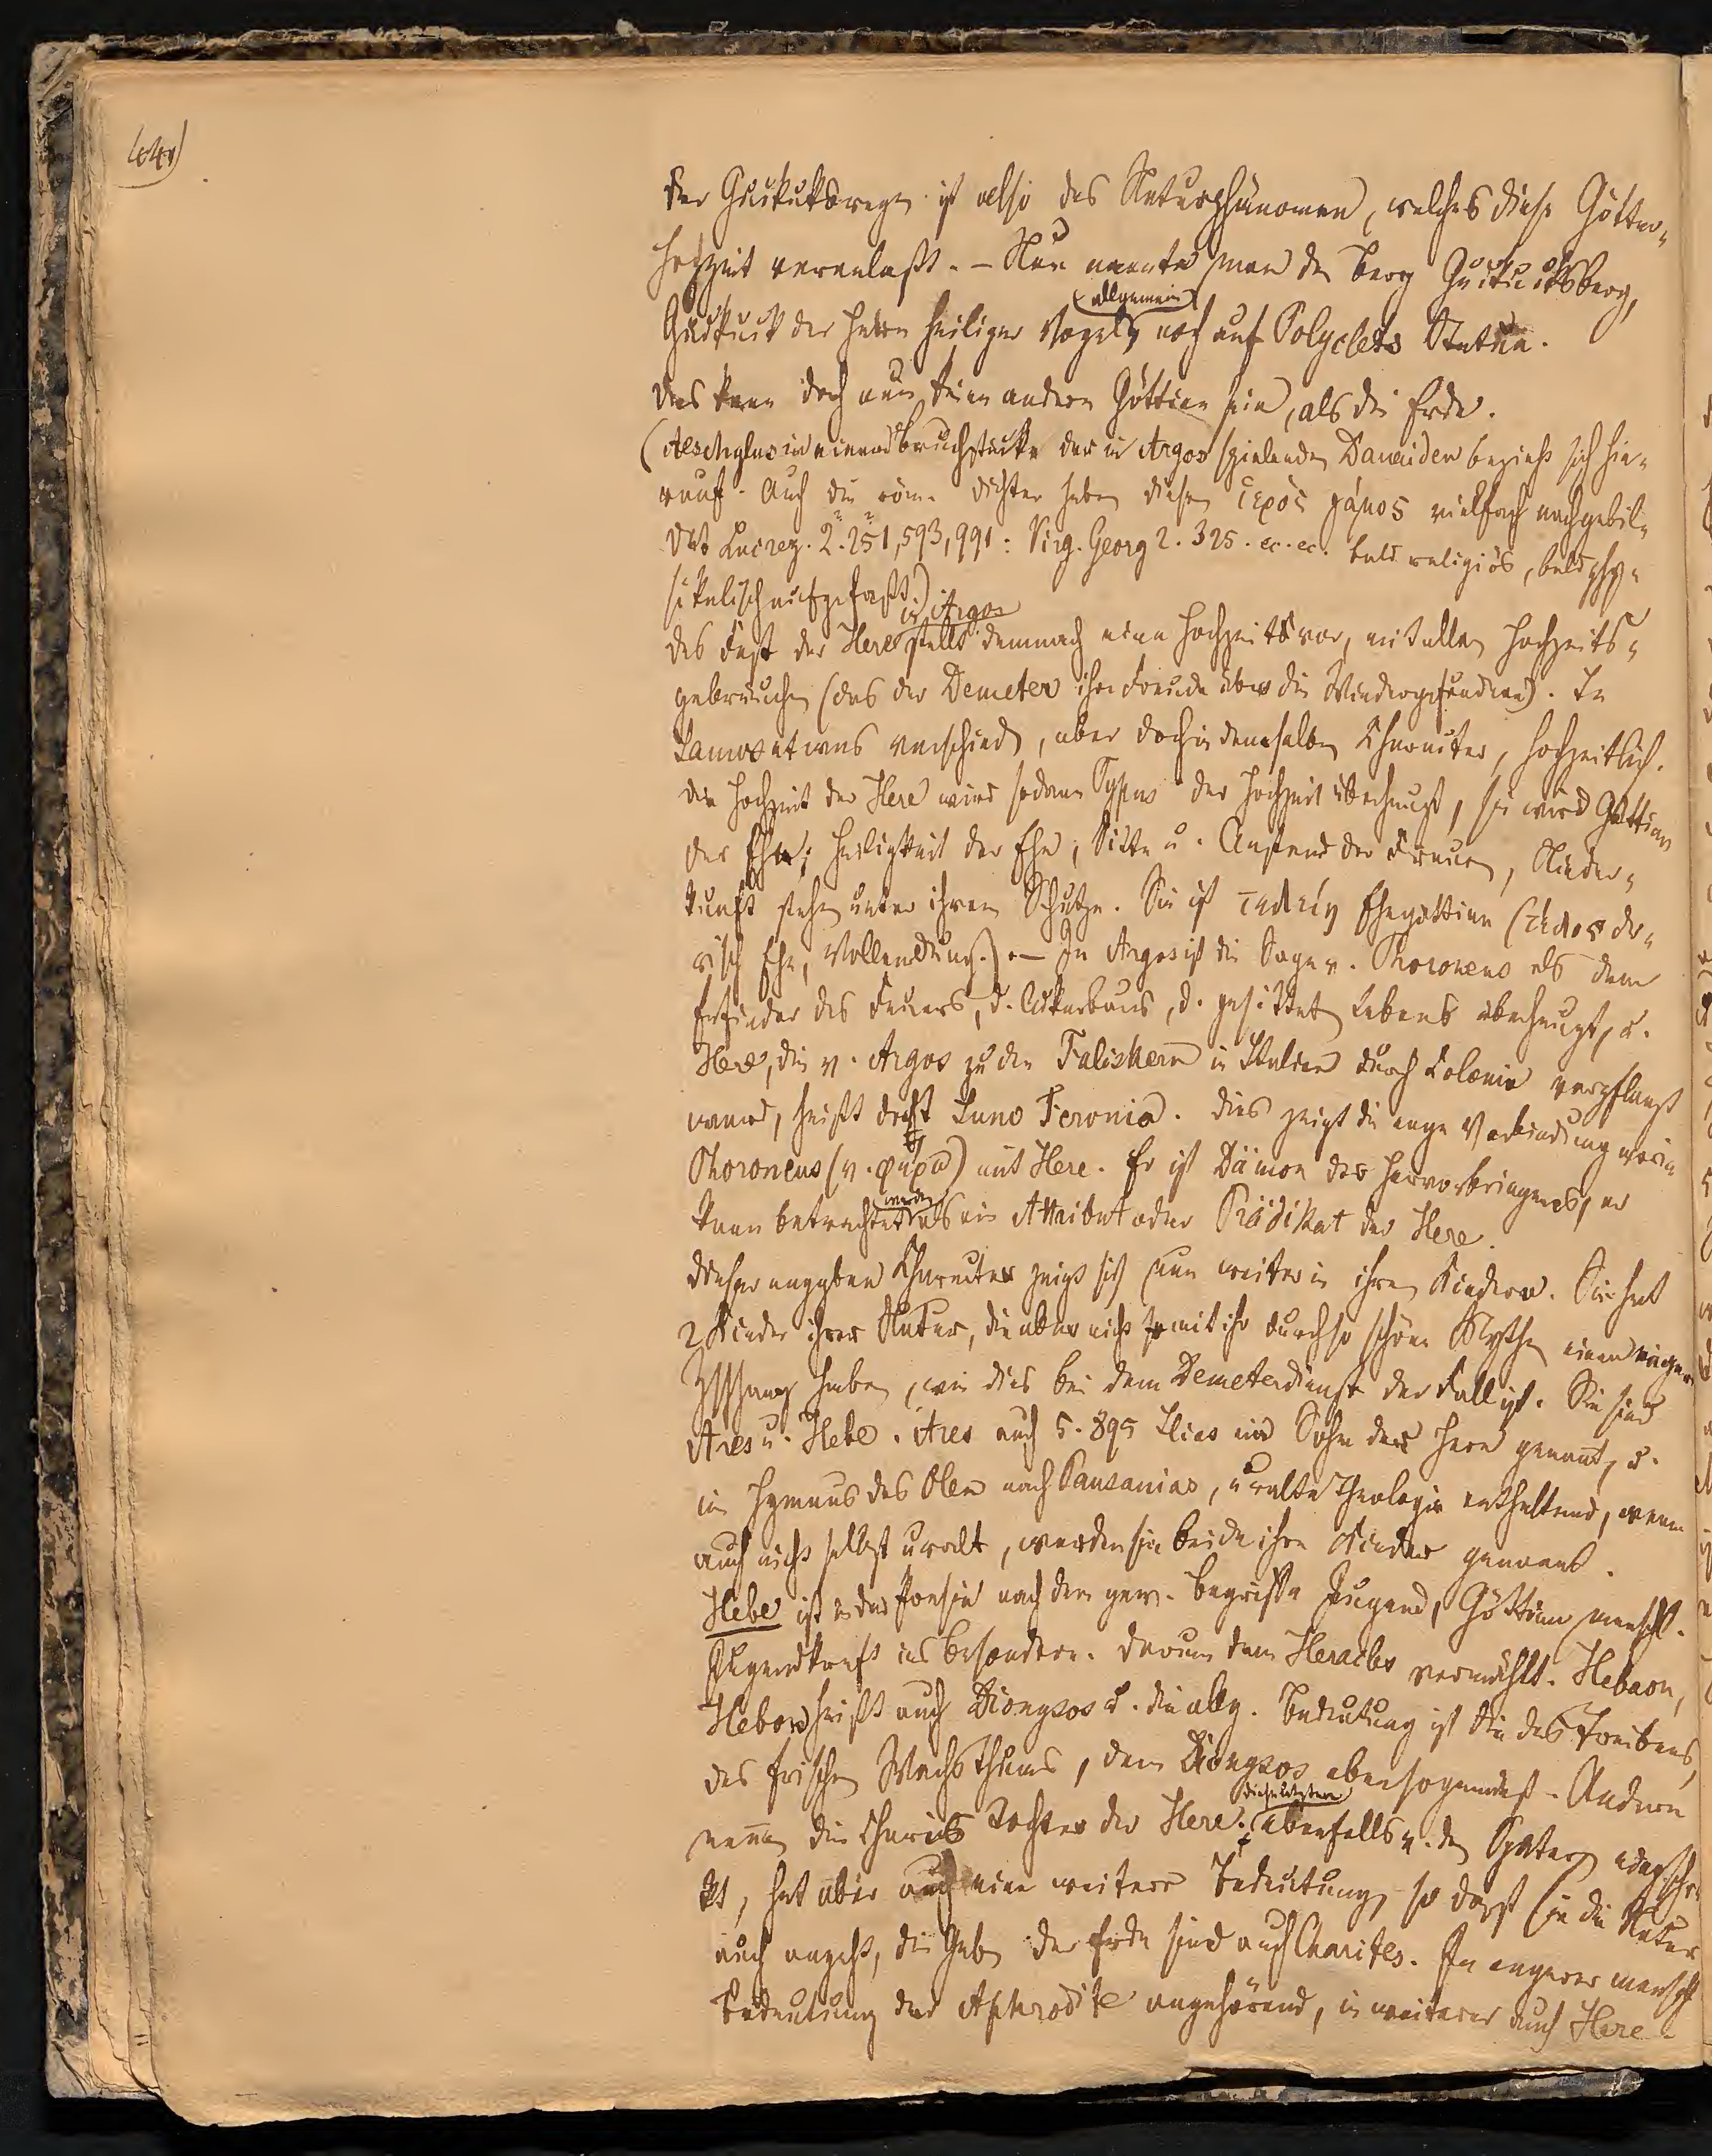 44)
Der Guckuksregen ist also das Naturphänomen, welches diese Götter-
hochzeit veranlaßt. – Nun nannte man den Berg Guckucksberg,
(allgemein)
Guckuck der Here heiliger Vogel, noch auf Polyclets Statue.
Das kann doch nun keine andere Göttinn sein, als die Erde.
(Aeschylus in einem Bruchstücke der in Argos spielenden Danaiden bezieht sich hie-
rauf. Auch die röm. Dichter haben diesen ἱερὸς γάμος vielfach nachgebil-
det Lucrez. 2. 251, 593, 991: Virg. Georg 2. 325. ec. ec. bald religiös, bald phy-
sikalisch aufgefaßt.)
in Argos
Das Fest der Here stellt demnach eine Hochzeit vor, mit allen Hochzeits-
gebräuchen (das der Demeter ihre Freude über die Wiedergefundene). In
Samos etwas verschieden, aber doch in demselben Charakter, hochzeitlich.
Die Hochzeit der Here wird sodann Typus der Hochzeit überhaupt, sie wird Göttinn
der Ehe; Heiligkeit der Ehe, Sitte u. Anstand der Frauen, Nieder-
kunft stehn unter ihrem Schutze. Sie ist τελείη Ehegöttinn (τέλος do-
risch Ehe, Vollendung.) – In Argos ist die Sage v. Phoroneus als dem
Erfinder des Feuers, d. Ackerbaus, d. gesitteten Lebens überhaupt, u.
Here, die v. Argos zu den Faliskern in Italien durch Colonie verpflanzt
ward, heißt dort Iuno Feronia. Dies zeigt die enge Verbindung
Phoroneus (v. φέρω) mit Here. Er ist Dämon des Hervorbringens, er
werden
kann betrachtet als ein Attribut oder Prädikat der Here.
Dieser angegebene Charakter zeigt sich nun weiter in ihren Kindern. Sie hat
2 Kinder ihrer Natur, die aber nicht mit ihr durch so schöne Mythen einen engen
Zshang haben, wie dies bei dem Demeterdienst der Fall ist. Sie sind
Ares u. Hebe. Ares auch 5. 895 Ilias ein Sohn der Here genannt, u.
im Hymnus des Olen nach Pausanias, uralte Theologie enthaltend, wenn
auch nicht selbst uralt, werden sie beide ihre Kinder genannt.
Hebe ist in der Poesie nach dem gew. Begriffe Jugend, Göttinn menschl.
Jugendkraft insbesondere. Darum dem Heracles vermählt. Hebaon,
Hebon heißt auch Dionysos u. die allg. Bedeutung ist die des Treibens,
des frischen Wachsthums, dem Dionysos ebenso – Andere
diese letztere
nennen die Charis Tochter der Here; ebenfalls v. den Spätern
kt, hat aber auch eine weitere Bedeutung, so daß sie die Natur
auch angeht, die Gaben der Erde sind auch Charites. In engerer menschl
Bedeutung der Aphrodite angehörend, in weiterer auch Here.